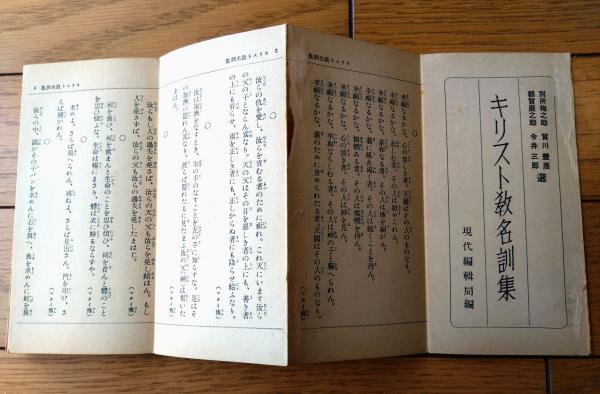 別所梅之助 賀川豊彦 選
額賀鹿之助 今井三郎
キリスト敎名訓集
現代編輯局編
幸福なるかな、心の貧しき者。天國はその人のものなり。
幸福なるかな、悲しむ者。その人は慰められん。
幸福なるかな、柔和なる者。その人は地を嗣がん。
幸福なるかな、義に飢ゑ渇く者。その人は飽くことを得ん。
幸福なるかな、憐憫ある者。その人は憐憫を得ん。
幸福なるかな、心の清き者。その人は神を見ん。
幸福なるかな、平和ならしむる者。その人は神の子と稱へられん。
幸福なるかな、義のために責められたる者。天國はその人のものなり。
集訓名敎トスリキ 2
〇
汝らの仇を愛し、汝らを責むる者のために祈れ。これ天にいます汝ら
の父の子とならん爲なり。天の父はその日を惡しき者の上にも、善き者
の上にも昇らせ、雨を正しき者にも、正しからぬ者にも降らせ給ふなり。
(マタイ傳)
〇
汝は施濟をなすとき、右の手のなすことを左の手に知らすな。是はそ
の施濟の隱れん爲なり。
集訓名敎トスリキ
汝らもし人の過失を免さば、汝らの天の父も汝らを免し給はん。もし
人を免さずば、汝らの父も汝らの過失を免し給はじ。
(マタイ傳)
〇
何を食ひ、何を飮まんと生命のことを思ひ煩ひ、何を著んと體のこと
を思ひ煩ふな。生命は糧にまさり、體は衣に勝るならずや。
(マタイ傳)
〇
求めよ、さらば與へられん。尋ねよ、さらば見出さん。門を叩け、さ
らば開かれん。
(マタイ傳)
〇
汝らの中、誰かその子パンを求めんに石を與へ、魚を求めんに蛇を與